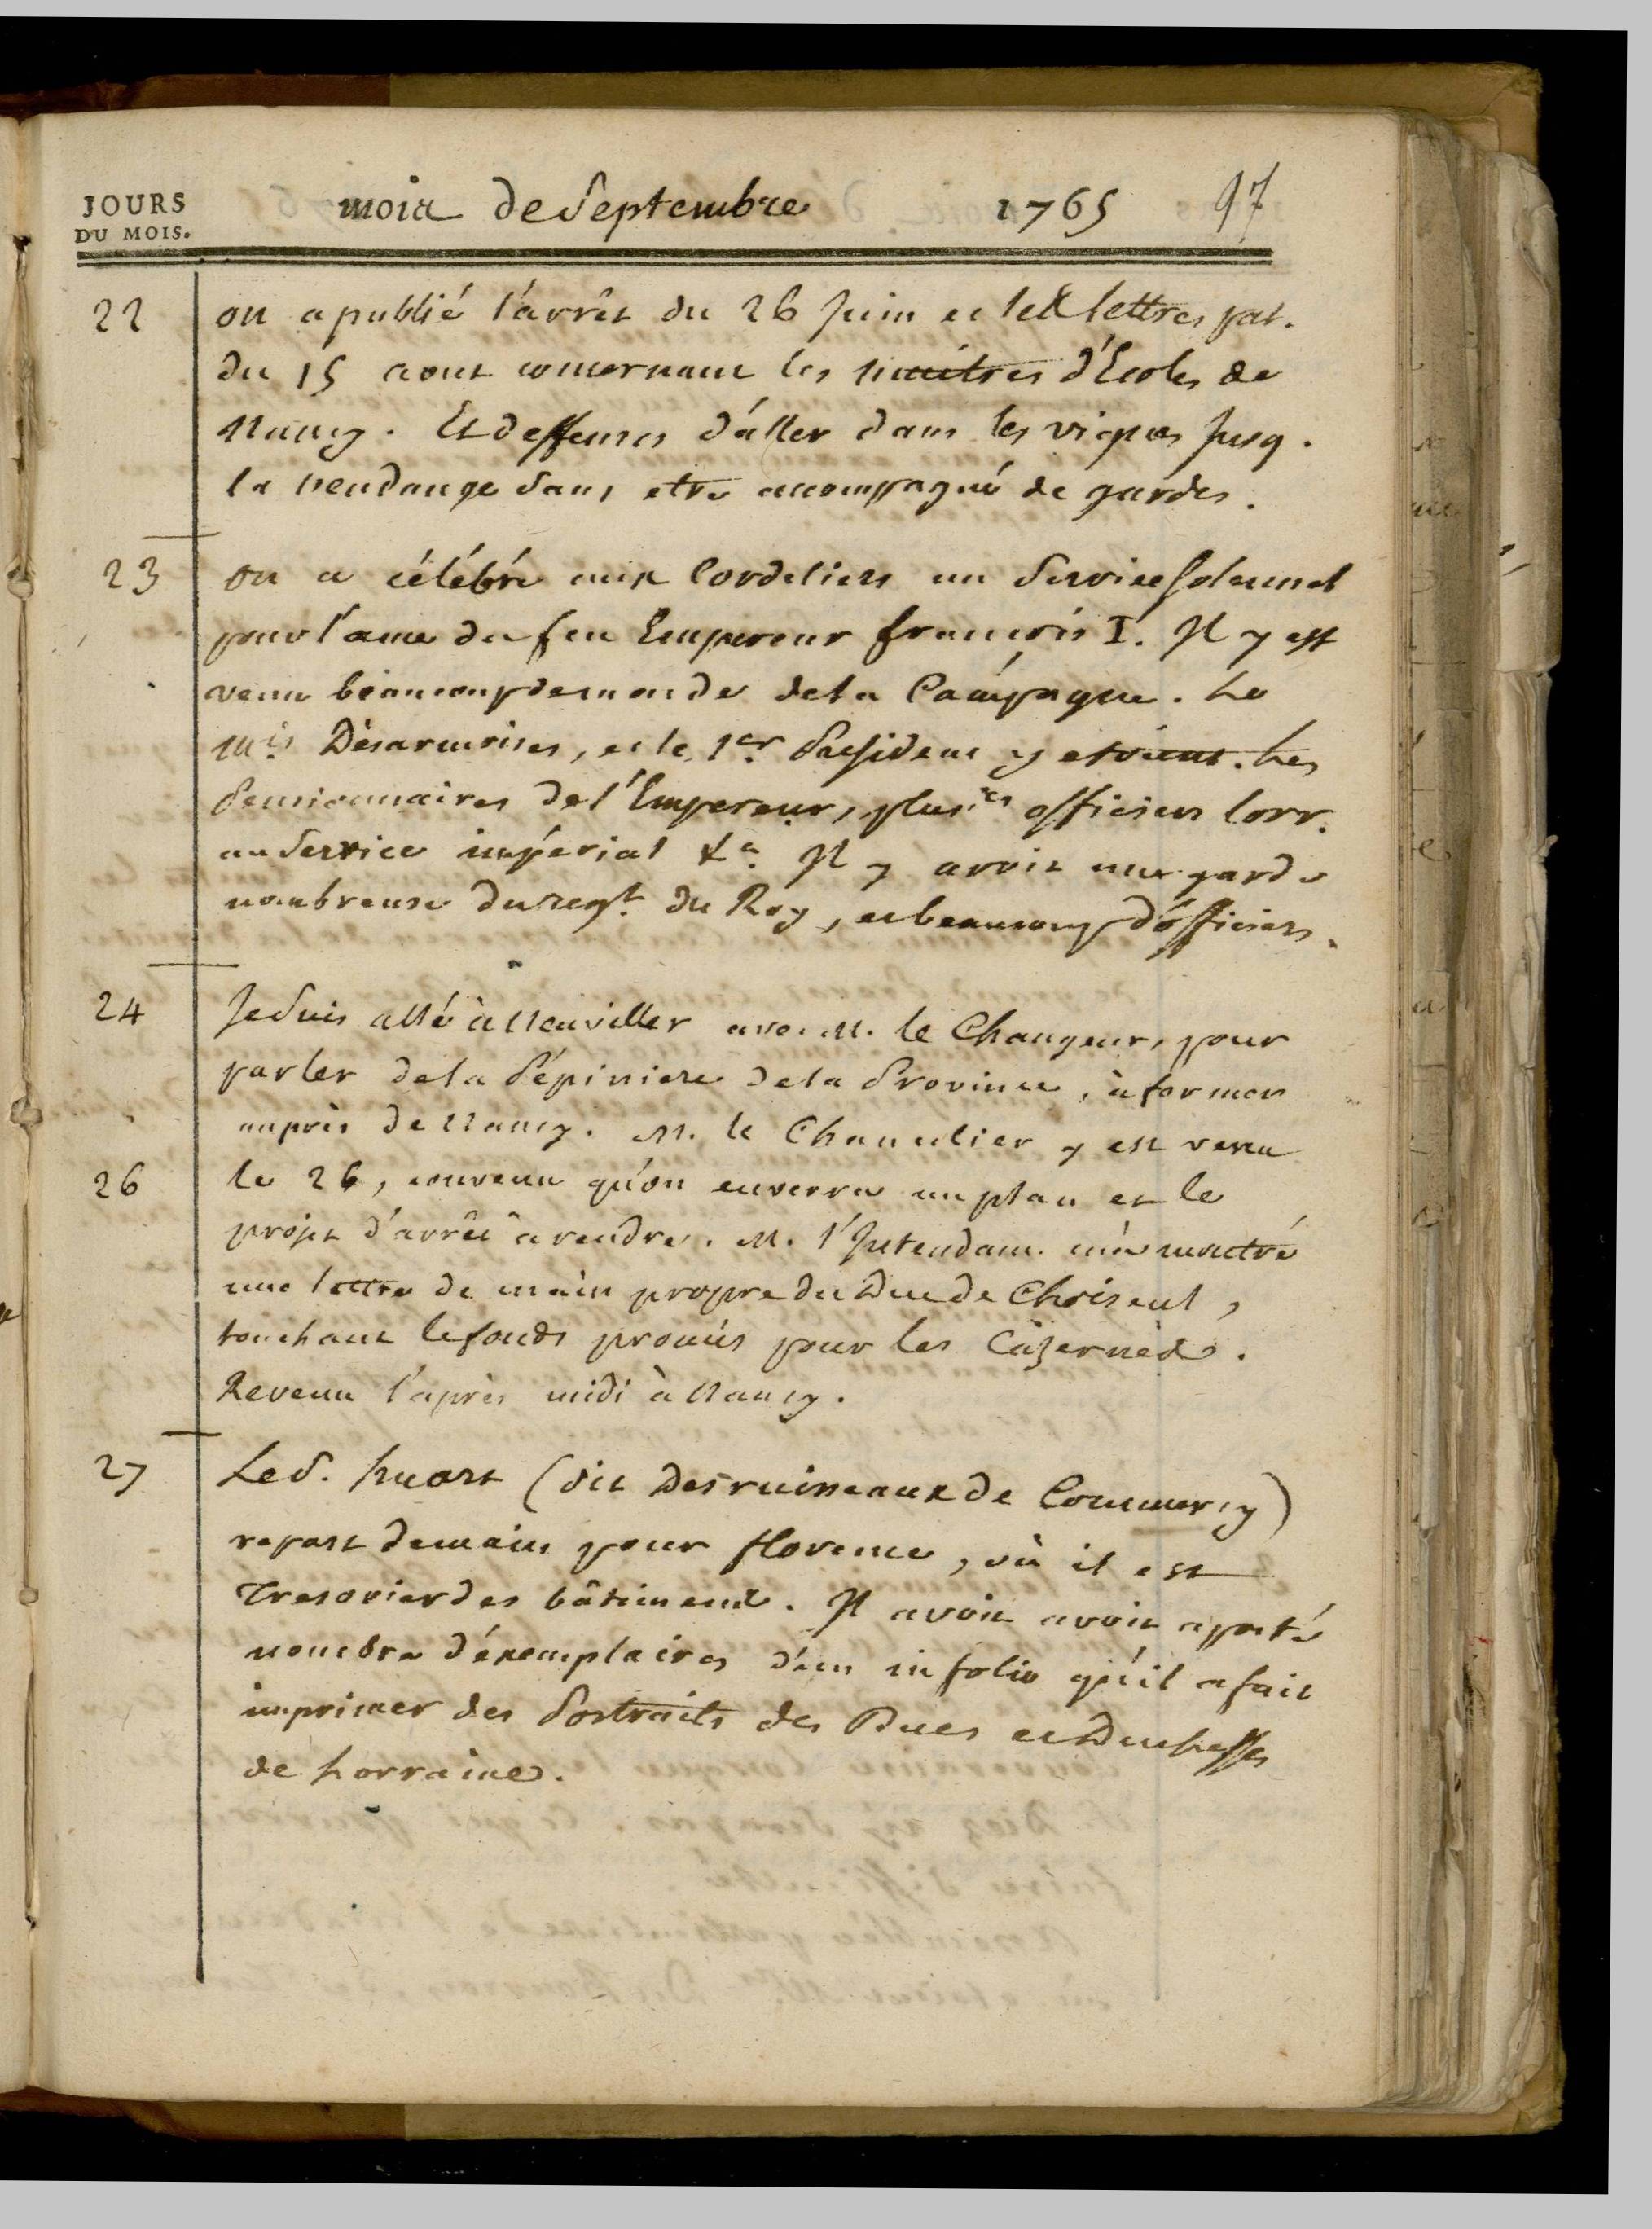 JOURS
DU MOIS.
mois de Septembre 1765 97
22 on a publié l'arrêt du 26 Juin et les lettres pat.
du 15 aout concernant les maitres d'Ecoles de
Nancy. Et deffenses d'aller dans les vignes jusq.
la vendange sans etre accompagné de gardes.
23 on a célébré aux Cordeliers un Service solemnel
pour l'ame du feu Empereur françois I. Il y est
venu beaucoup de monde de la Campagne. Le
Mis. Désarmoises, et le 1er. President y etoient. Les
Pensionnaires de l'Empereur, plusirs officiers lorr.
au Service impérial &a. Il y avoit une garde
nombreuse du regt. du Roy, et beaucoup d'officiers.
24 Je suis allé à Neuviller avec M. le Changeur, pour
parler de la Pépiniere de la Province, à former
auprès de Nancy. M. le Chancelier y est venu
26 le 26, convenu qu'on enverra un plan et le
projet d'arrêt à rendre. M. l'Intendant m'a montré
une lettre de main propre du Duc de Choiseul,
touchant le fonds promis pour les Cazernes.
Revenu l'après midi à Nancy.
27 Le S. huart (dit Desruisseaux de Commercy)
repart demain pour florence, où il est
Tresorier des bâtimens. Il avoit avoit aporté
nombre d'éxemplaires d'un in folio qu'il a fait
imprimer des Portraits des Ducs et Duchesses
de Lorraine.